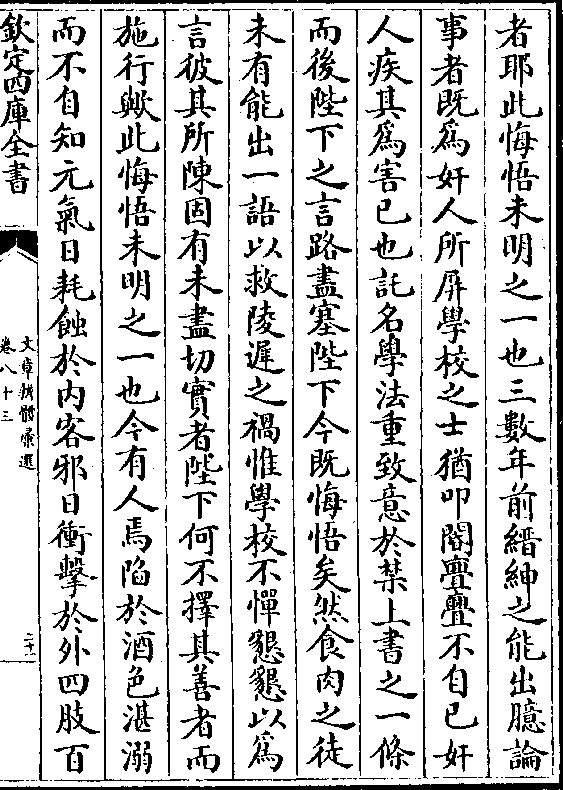 者耶此悔悟未明之一也三數年前縉紳之能出臆論
事者既為奸人所屏學校之士猶叩閽亹亹不自已奸
人疾其為害已也託名學法重致意於禁上書之一條
而後陛下之言路盡塞陛下今既悔悟矣然食肉之徒
未有能出一語以救陵遲之禍惟學校不憚懇懇以為
言彼其所陳固有未盡切實者陛下何不擇其善者而
施行歟此悔悟未明之一也今有人焉陷於酒色湛溺
而不自知元氣日耗蝕於内客邪日衝擊於外四肢百
欽定四庫全書
文章辨體彚選
卷八十三
二十一